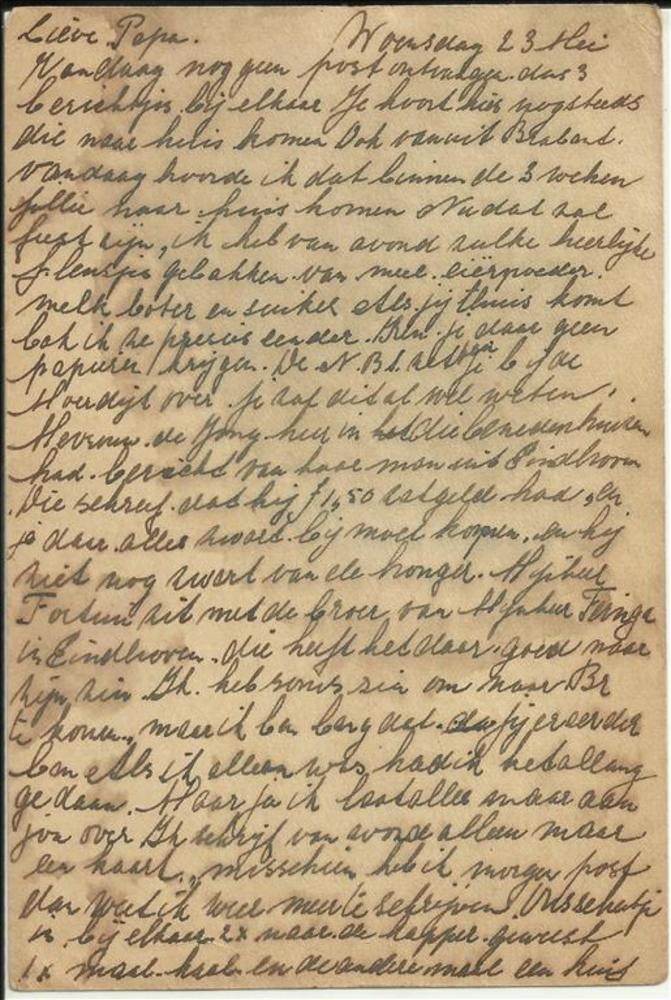 Lieve Papa. Woensdag 23 Mei
Vandaag nog geen post ontvangen. dus 3
berichtjes bij elkaar Je hoort hier nog steeds
die naar huis komen Ook vanuit Brabant.
vandaag hoorde ik dat binnen de 3 weken
jullie naar huis komen Nu dat zal
feest zijn, ik heb van avond zulke heerlijke
flensjes gebakken van meel. eierpoeder.
melk boter en suiker Als jij thuis komt
bak ik ze precies eender. Kun je daar geen
papieren krijgen. De N.B.S. zet je bij de
Moerdijk over. je zal dit al wel weten.
Mevrouw de Jong hier in die benedenhuizen
had bericht van haar man uit Eindhoven
Die schreef dat hij f 1,50 zakgeld had, en
je daar alles zwart bij moet kopen, en hij
ziet nog zwart van de honger. Mijnheer
Fortuin zit met de broer van Mijnheer Feringa
in Eindhoven. die heeft het daar goed naar
zijn zin Ik heb soms zin om naar Br
te komen, maar ik ben bang dat jij er eerder
ben Als ik alleen was, had ik het allang
gedaan. Maar ja ik laat alles maar aan
jou over Ik schrijf van avond alleen maar
een kaart, misschien heb ik morgen post
dan weet ik weer meer te schrijven Ons schatje
is bij elkaar 2x naar de kapper geweest
1x maal kaal en de andere maal een kuif